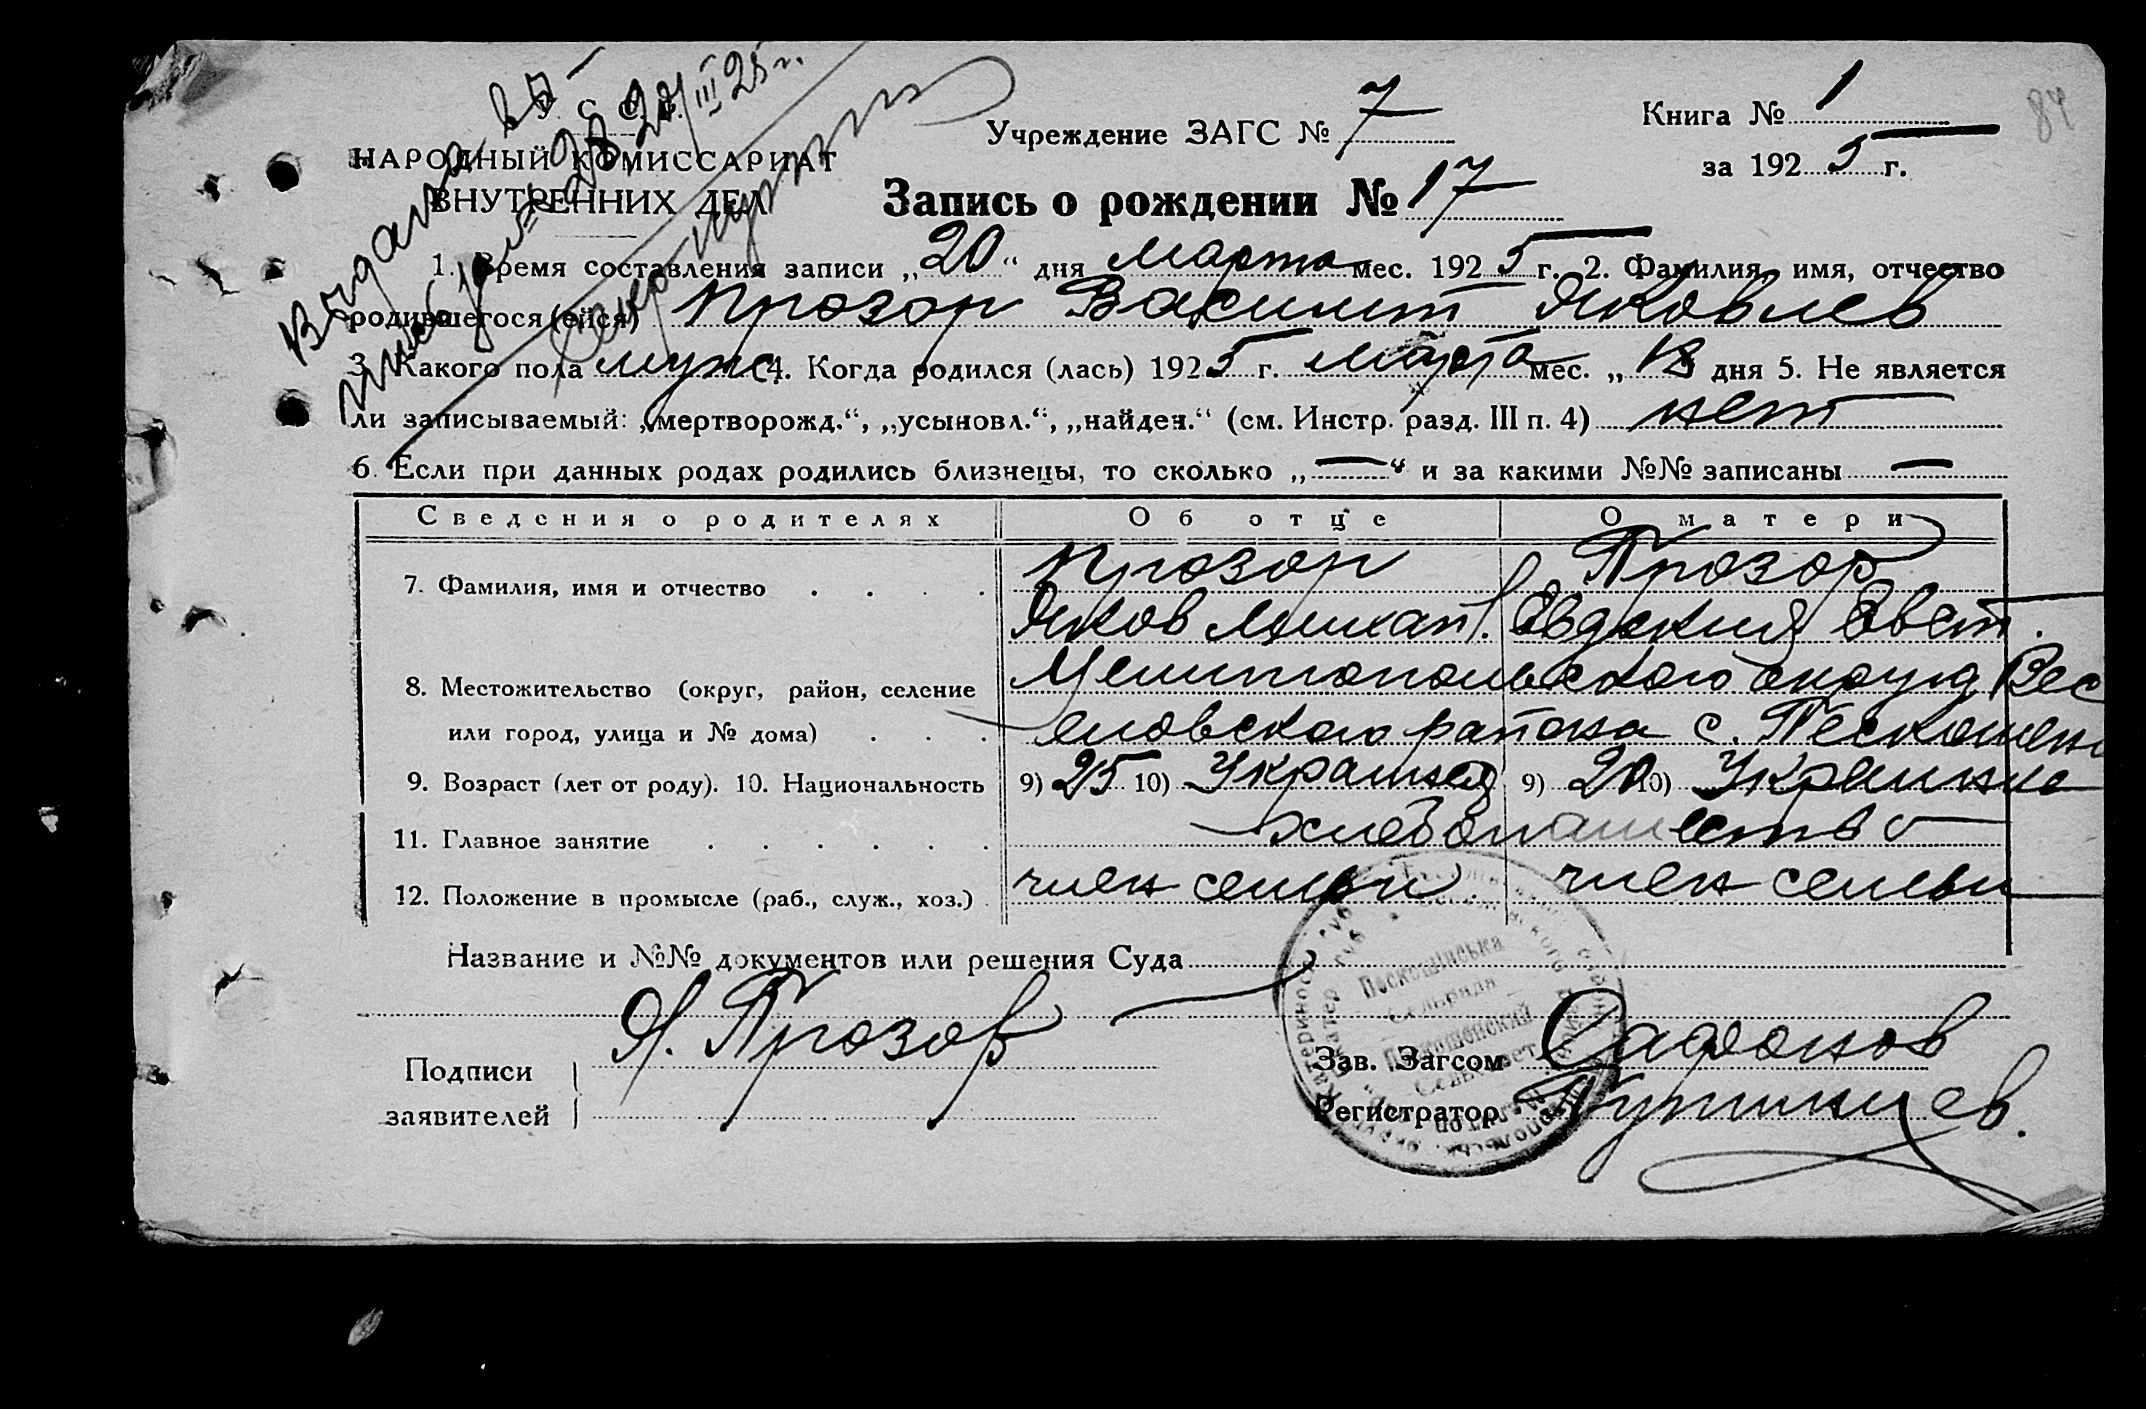 Выдана
27/III 25 г.
У. С. С. Р.
НАРОДНЫЙ КОМИССАРИАТ
ВНУТРЕННИХ ДЕЛ
Учреждение ЗАГС № 7
Книга № 1
за 1925 г.
84
Запись о рождении № 17
1. Время составления записи „20“ дня Марта мес. 1925 г. 2. Фамилия, имя, отчество
родившегося (ейся) Прозор Василит Яковлев
3. Какого пола муж. 4. Когда родился (лась) 1925 г. Марта мес. „18 дня 5. Не является
ли записываемый: „мертворожд.“, „усыновл.“, „найден.“ (см. Инстр. разд. III п. 4) нет
6. Если при данных родах родились близнецы, то сколько „—“ и за какими №№ записаны —
Сведения о родителях Об отце О матери
7. Фамилия, имя и отчество Прозор Прозор
Яков МихаП. Евдокия
8. Местожительство (округ, район, селение Мелитопольского округа Вес
или город, улица и № дома) еловского района с. Пескошен
9. Возраст (лет от роду). 10. Национальность 9) 25 10) Украинец 9) 20 10) Украинка
11. Главное занятие хлебопашество
12. Положение в промысле (раб., служ., хоз.) член семьи член семьи
Название и №№ документов или решения Суда
Подписи
заявителей
Я. Прозор
Зав. Загсом Сафонов
Регистратор
Пескошинська
Сельрада
Пескошинский
Сельсовет